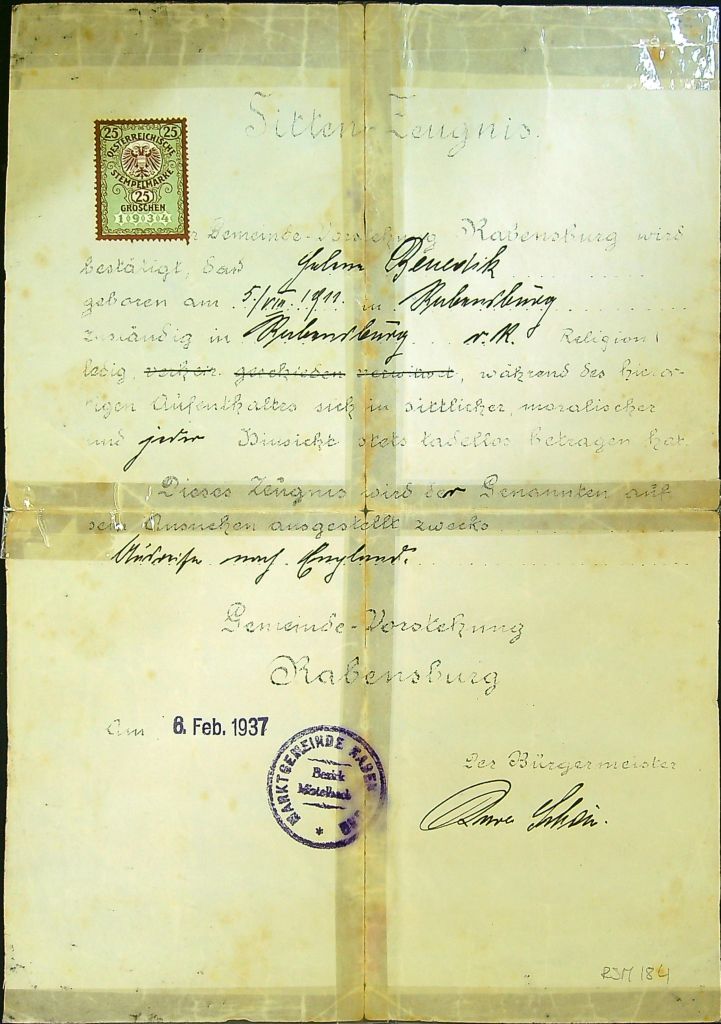 Sitten-Zeugnis.
25 25
OESTERREICHISCHE
STEMPELMARKE
25
GROSCHEN
1934
Gemeinde-Vorstehung Rabensburg wird
bestätigt, daß Benedik
geboren am 5./VIII. 1911. in Rabensburg
zuständig in Rabensburg r. k. Religion
ledig, verheir. geschieden verwitwet, während des hieror-
tigen Aufenthaltes sich in sittlicher, moralischer
und jeder Hinsicht stets tadellos betragen hat.
Dieses Zeugnis wird der Genannten auf
sein Ansuchen ausgestellt zwecks
Ausreise nach England.
Gemeinde-Vorstehung
Rabensburg
Am 6. Feb. 1937
MARKTGEMEINDE RABEN
Bezirk
Mistelbach
Der Bürgermeister
RJM 184